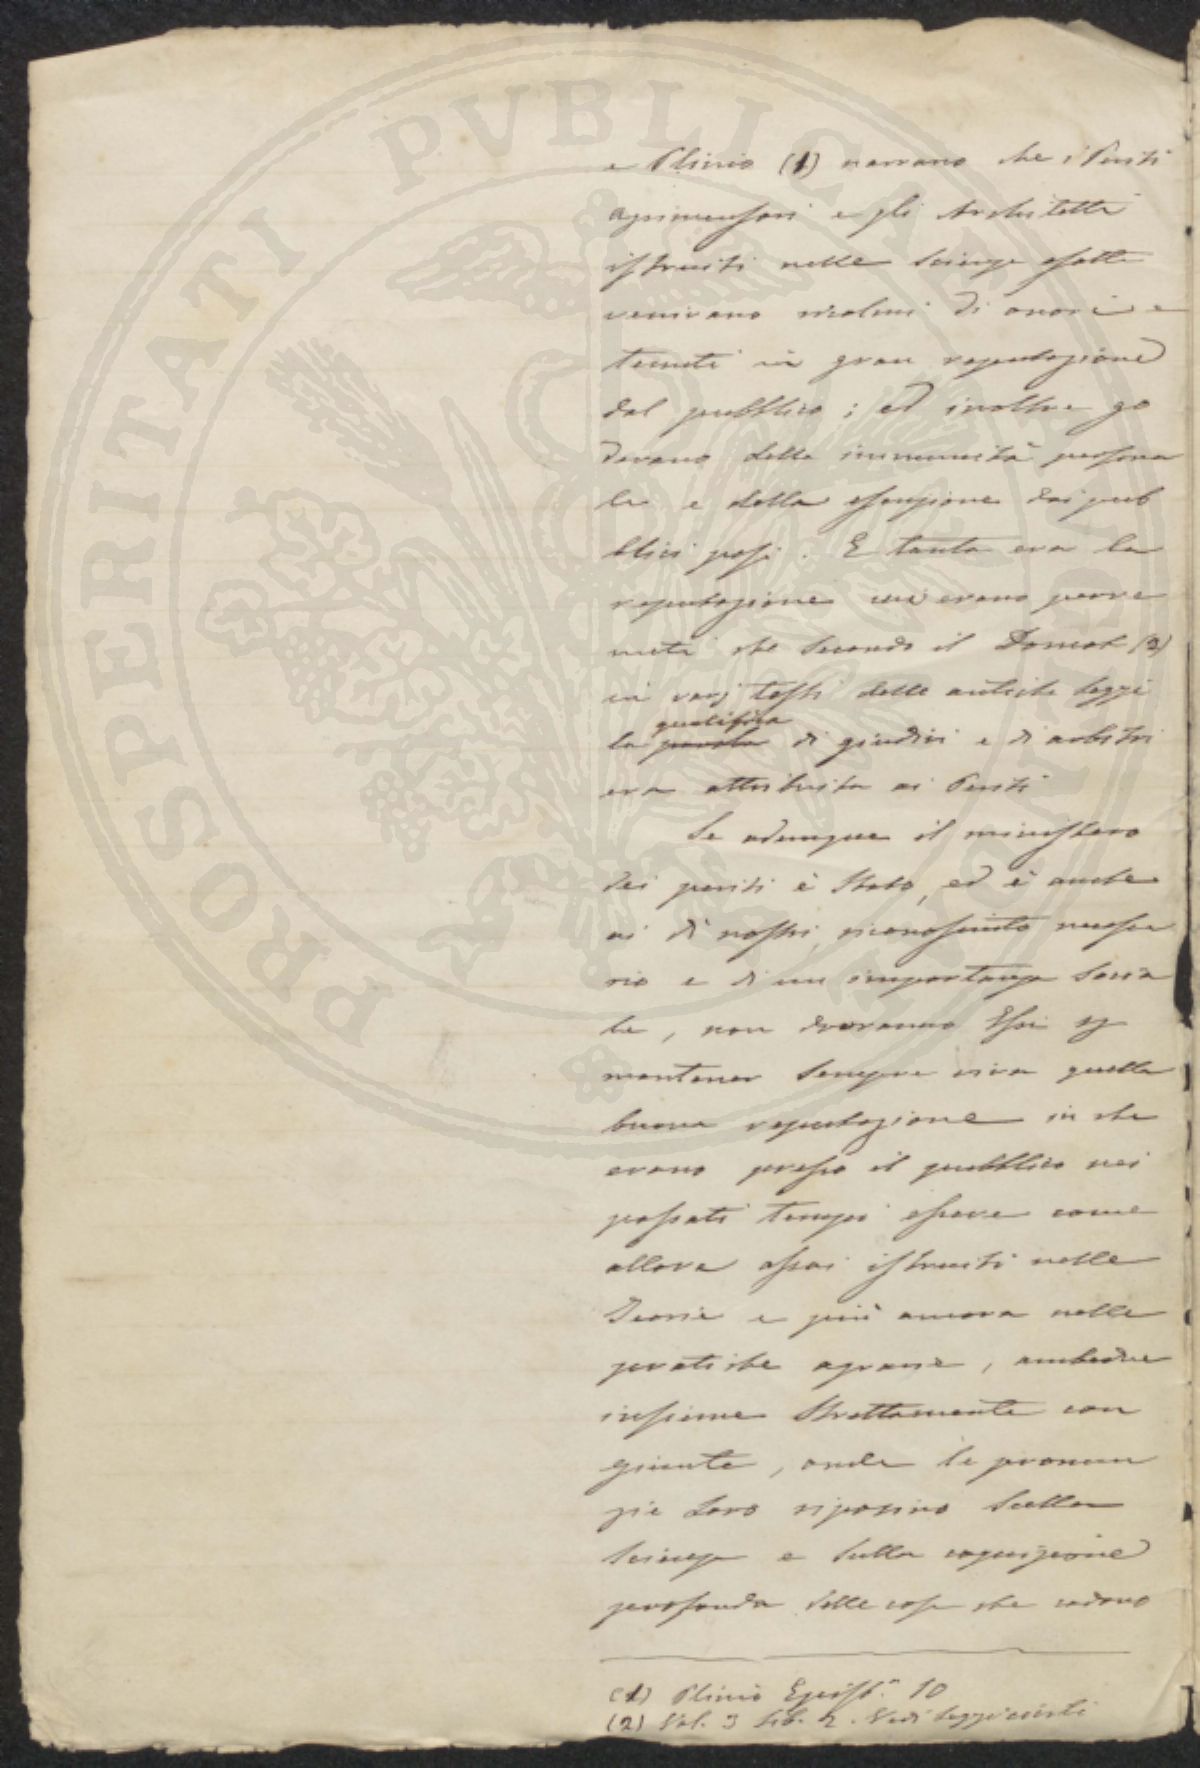 e Plinio (1) narrano che i Periti
agrimensori e gli Architetti
istruiti nelle Scienze esatte
venivano ricolmi di onori e
tenuti in gran reputazione
dal pubblico; ed inoltre go
devano della immunità persona
le e della esenzione dai pub
blici pesi. E tanta era la
reputazione cui erano perve
nuti che secondo il Domat (2)
in varj testi delle antiche leggi
qualifica
la parola di giudici e di arbitri
era attribuita ai Periti
Se adunque il ministero
dei periti è Stato, ed è anche
ai dì nostri, riconosciuto necessa
rio e di un importanza Socia
le, non dovranno Essi p
mantener Sempre viva quella
buona reputazione in che
erano presso il pubblico nei
passati tempi essere come
allora assai istruiti nelle
Teorie e più ancora nelle
pratiche agrarie, ambedue
insieme Strettamente con
giunte, onde le pronun
zie Loro riposino Sulla
Scienza e Sulla cognizione
profonda delle cose che cadono
(1) Plinio Epist.ª 10
(2) Vol. 3 Lib. 2. Vedi leggi civili
PROSPERITATI PVBLICAE